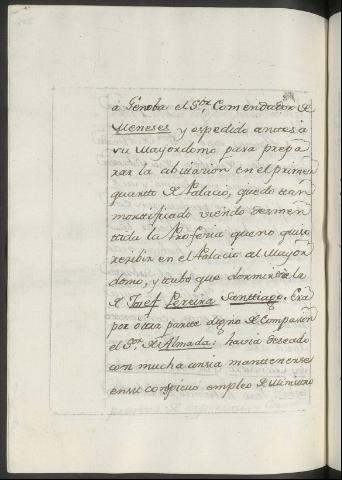 a Genoba el S.or Comendador de
Meneses y espedido antes a
su Mayordomo para prepa
rar la abitacion en el primer
quarto de Palacio, quedo tan
mortificado viendo desmen
tida la Profecia que no quiso
recibir en el Palacio al Mayor
domo, y tubo que dormir en la
de Josef Pereira Santtiago. Era
por otra parte digno de Compasion
el S.or de Almada: havia deseado
con mucha ansia mantenerse
en su conspicuo empleo de Ministro